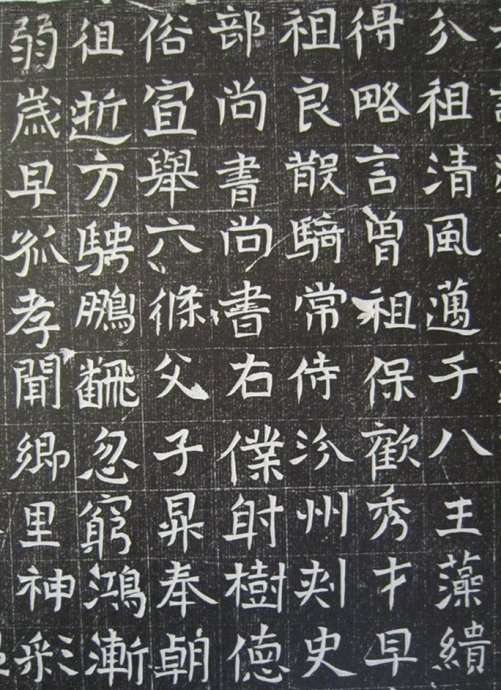 祖清風邁千八王藻繢
得略言曾祖保歡秀才早
祖良散騎常侍汾州刾史
部尚書尚書右僕射樹德
俗宣舉六條父子昇奉朝
徂逝方騁鵬翻忽窮鴻漸
弱歲早孤孝聞鄉里神彩